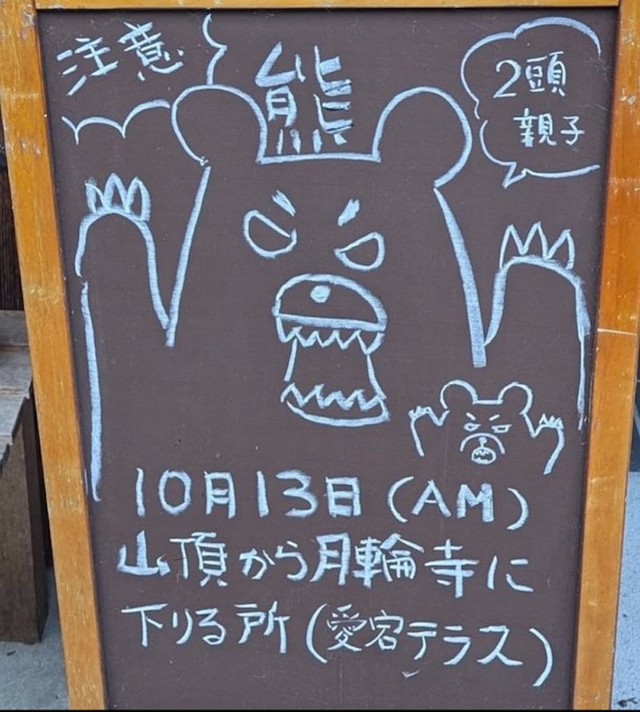 注意
熊
2頭
親子
10月13日(AM)
山頂から月輪寺に
下りる所(愛宕テラス)